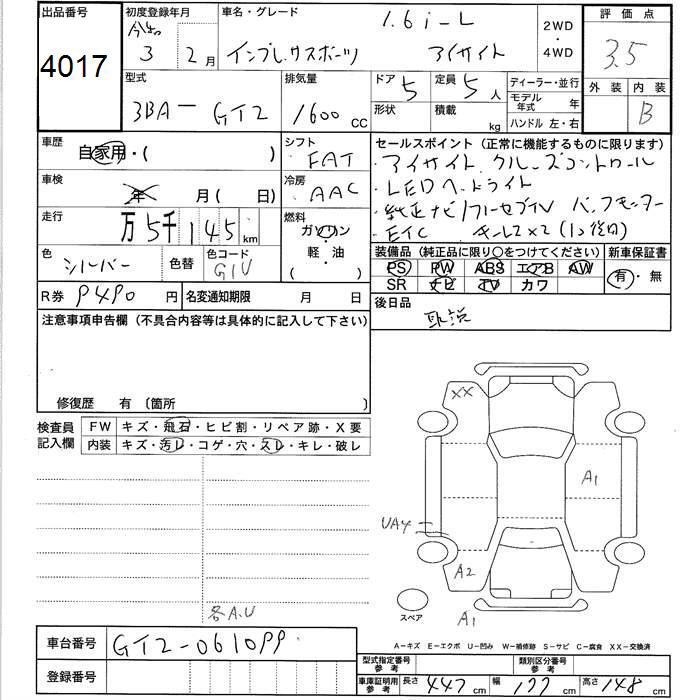 出品番号 初度登録年月 車名・グレード 1.6i-L 2WD・4WD 評価点
4017 令和 3年 2月 インプレッサスポーツ アイサイト 3.5
型式 排気量 ドア 5 定員 5人 ディーラー・並行 外装 内装
3BA- GT2 1600 CC 形状 積載 kg モデル年式 年 B
ハンドル 左・右
車歴 自家用・( ) シフト FAT セールスポイント(正常に機能するものに限ります)
車検 年 月( 日) 冷房 AAC ・アイサイト クルーズコントロール
・LEDヘッドライト
走行 万5千145km 燃料 ガソリン・軽・油( ) ・純正ナビ/フルセグTV バックモニター
・ETC キーレス×2(1コ後日)
色 シルバー 色替 色コード G1U 装備品(純正品に限り○をつけてください) 新車保証書
PS PW ABS エアB AW 有・無
SR ナビ TV カワ
R券 9490円 名変通知期限 月 日 後日品
注意事項申告欄(不具合内容等は具体的に記入して下さい) 取説
修復歴 有 〔箇所 〕
検査員記入欄 FW キズ・飛石・ヒビ割・リペア跡・X要
内装 キズ・汚レ・コゲ・穴・スレ・キレ・破レ
XX
A1
UA4
A2
スペア
A1
各A.U
A−キズ E−エクボ U−凹み W−補修跡 S−サビ C−腐食 XX−交換済
車台番号 GT2-061099
登録番号
型式指定番号参考 類別区分番号参考
車庫証明用参考 長さ 447cm 幅 177cm 高さ 148cm